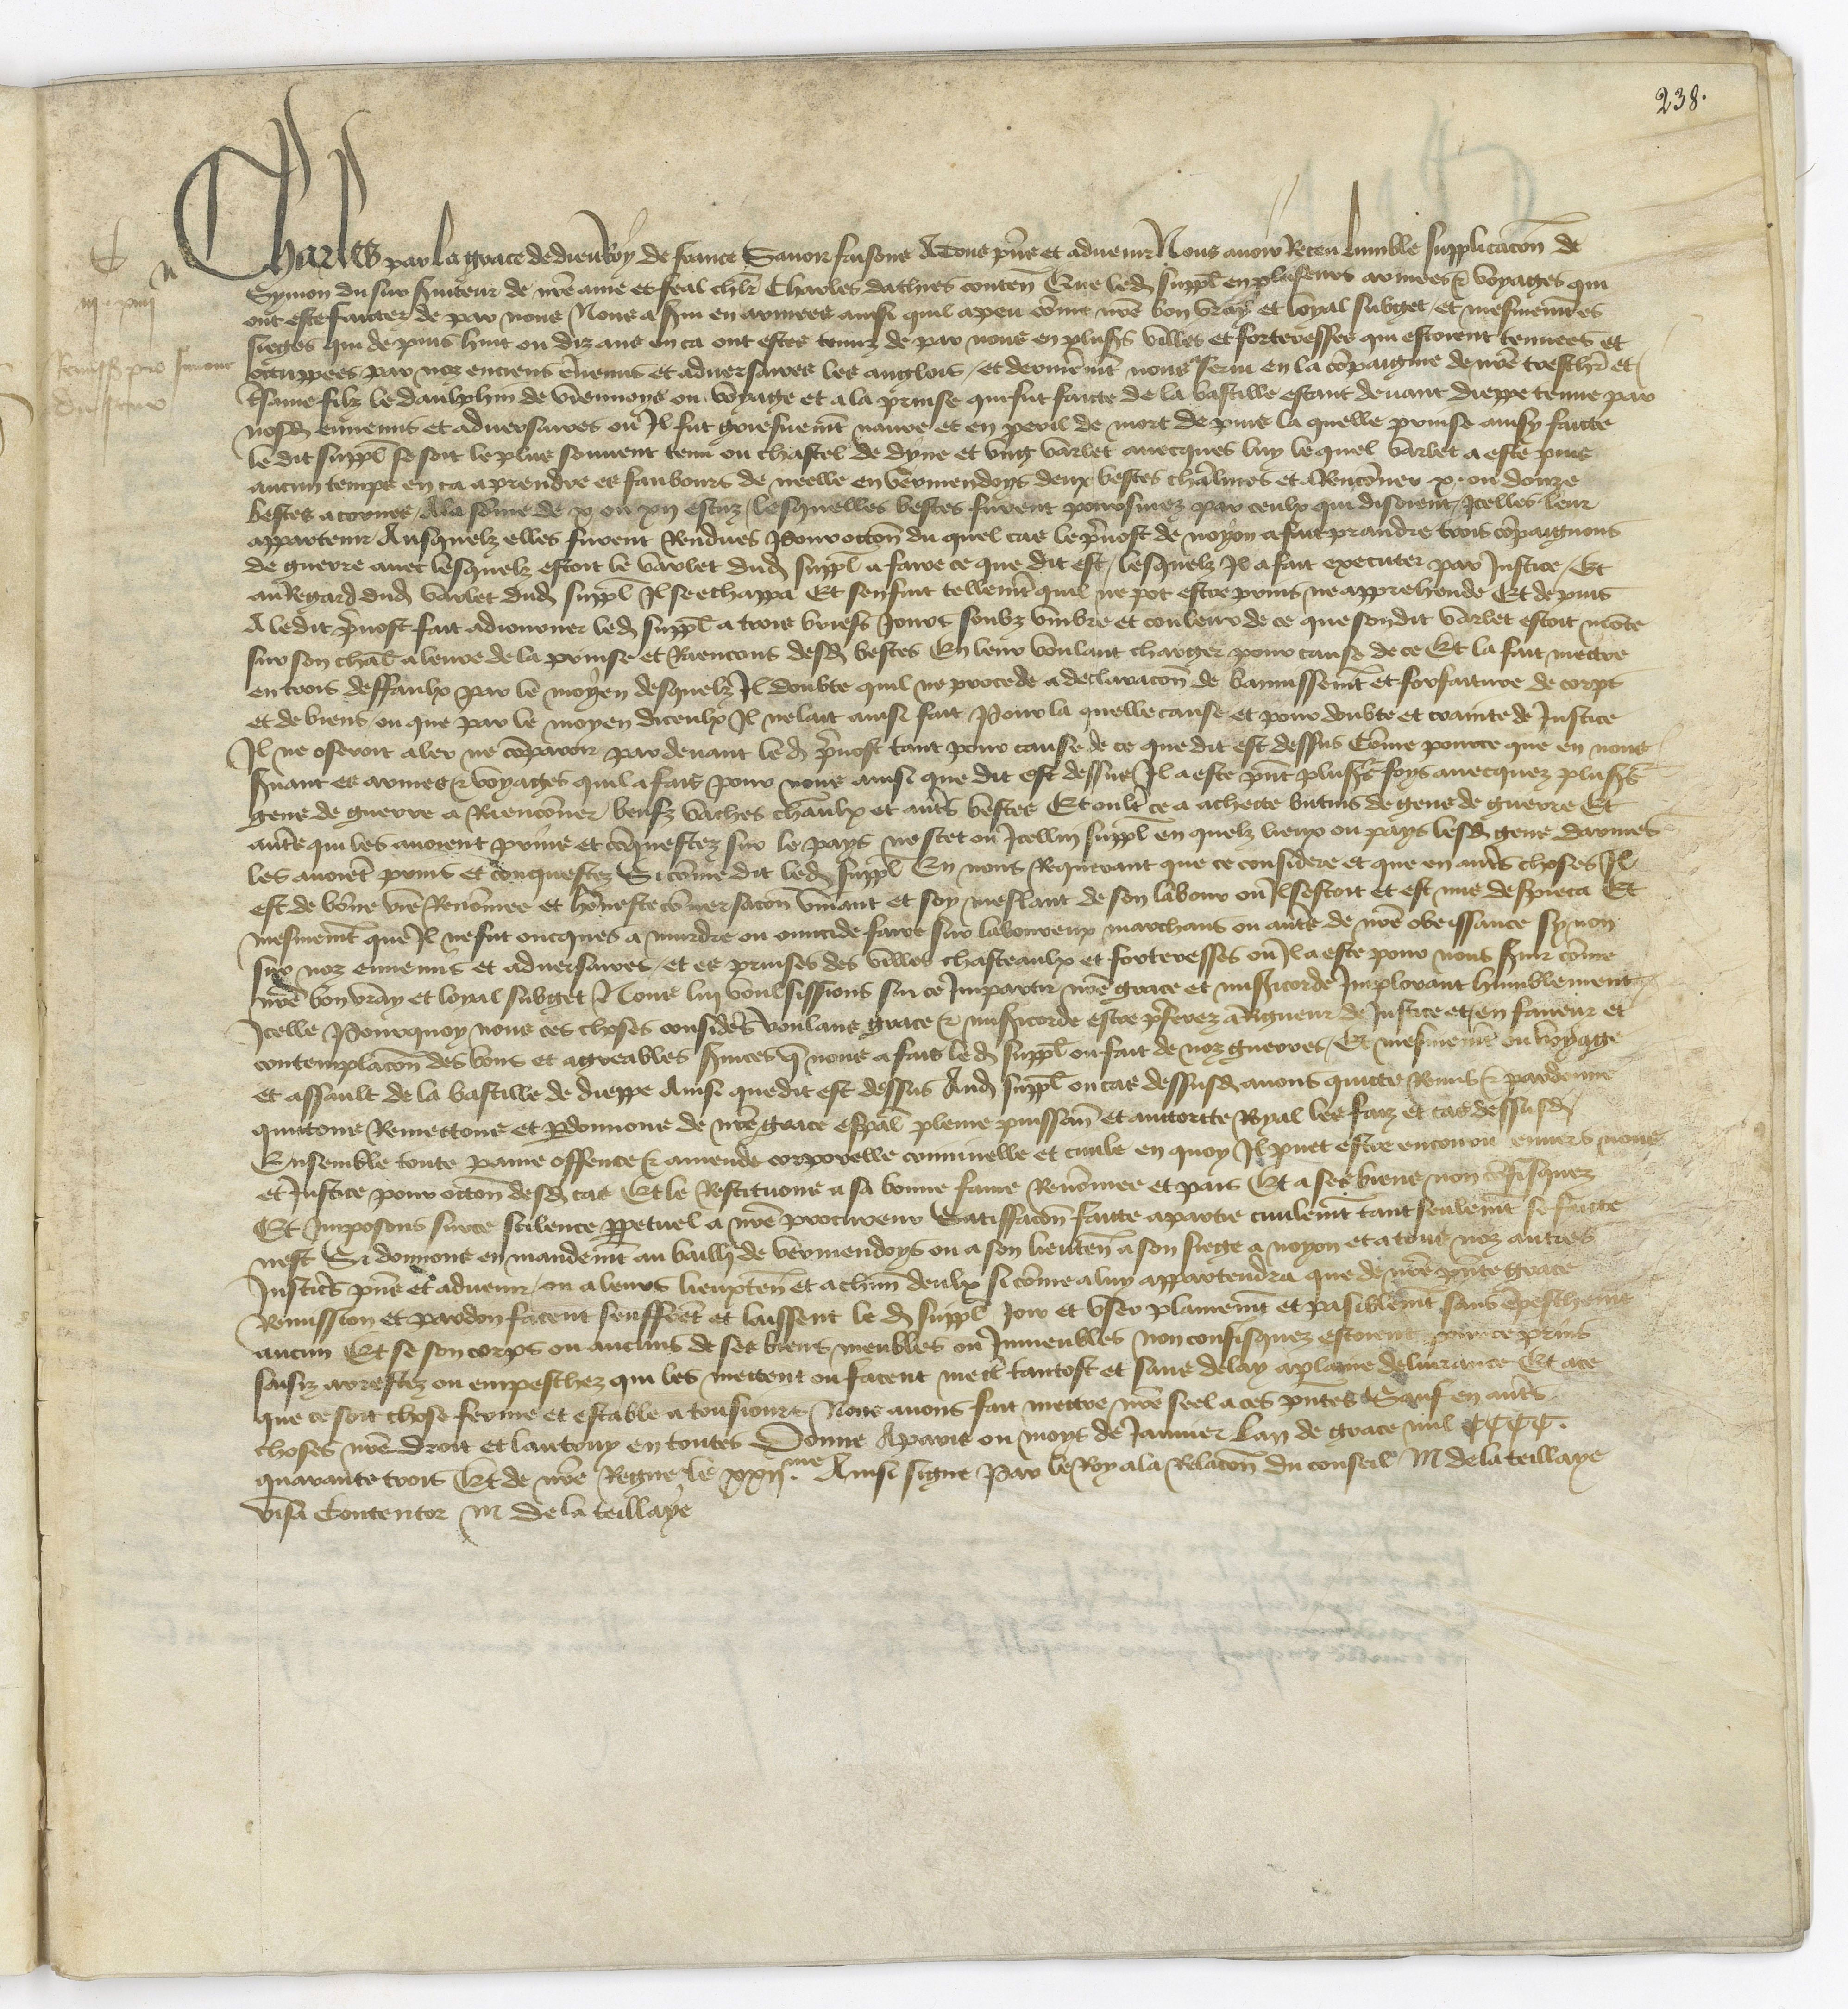 238.
Charles par la grace de dieu Roy de france Savoir faisons A Tous pns et advenir Nous avoir Receu humble supplicacon de
Symon du sur serviteur de nre ame et feal chlr Charles dathies conten Que led suppl en pluseurs armees & voyages qui
ont este faictes de par nous Nous a servi en armes ainsi quil a peu come nre bon vray et loyal subget et mesmemt es
sieges qui de puis huit ou dix ans en ca ont estez tenuz de par nous en plusrs villes et forteresses qui estoient tenues et
occuppees par noz enciens ennemis et adversaires les anglois / et derrenieremt nous a servi en la compaignie de nre treschr et
tsame filz le daulphin de viennoys ou voyage et a la prinse qui fut faicte de la bastille estant devant dieppe tenue par
nosd ennemis et adversaires ou Il fut griefvemt navre et en peril de mort de puis la quelle prinse ainsy faicte
le dit suppl se soit le plus souvent tenu ou chastel de dyne et ung varlet avecques luy le quel varlet a este puis
aucun temps en ca a prendre es faubours de neelle en vermendoys deux bestes chevalines et Renconer x. ou douze
bestes a cornes / A la some de x ou xii escuz / lesquelles bestes furent poursuiez par ceulx qui disoient / Icelles leur
appartenir / Ausquelz elles furent Rendues Pour occon du quel cas le prevost de noyon a fait prandre trois compaignons
de guerre avec lesquelz estoit le varlet dud suppl a faire ce que dit est / lesquelz Il a fait executer par Justice / Et
au Regard dud varlet dud suppl Il se echappa Et senfuit tellemt quil ne pot estre prins ne apprehende Et de puis
A le dit prevost fait adiourner led suppl a trois briefs Jours soubz umbre et couleur de ce que sondit varlet estoit monte
sur son chal a leure de la prinse et Raencons desd bestes En leur voulant charger pour cause de ce Et la fait mettre
en trois deffaulx par le moyen desquelz Il doubte quil ne procede a declaracon de bannissemt et forfaiture de corps
et de biens ou que par le moyen diceulx Il ne lait ainsi fait Pour la quelle cause et pour doubte et crainte de Justice
Il ne oseroit aler ne comparoir par devant le d prevost tant pour cause de ce que dit est dessus Come pource que en nous
servant es armes & voyages quil a fais pour nous ainsi que dit est dessus Il a este pnt plusrs foys avecquez plusrs
gens de guerre a Raenconer beufz vaches chevaulx et autrs bestes Et oultr ce a achecte butins de gens de guerre Et
autrs qui les avoient prins et conquestez sur le pays ne scet ou Icellui suppl en quelz lieux ou pays lesd gens darmes
les avoiet prins et conquestez Si come dit led suppl En nous Requerant que ce considere et que en autrs choses Il
est de bonne vie Renommee et honneste conversacon vivant et soy meslant de son labour ou Il sestoit et est mis despieca Et
mesmemt que Il ne fut oncques a murdre ou omicide faire sur laboureux marchans ou autrs de nre obeissance sy non
sur noz ennemis et adversaires / et es prinses des villes chasteaulx et forteresses ou Il a este pour nous servir come
nre bon vray et loyal subget Nous luy voulsissions sur ce Impartir nre grace et misericorde Implorant humblement
Icelle Pourquoy nous ces choses considers voulans grace & misericorde estre preferez a Rigueur de Justice et en faveur et
contemplacon des bons et agreables services q nous a fais le d suppl ou fait de noz guerres / Et mesmemt ou voyage
et assault de la bastille de dieppe Ainsi que dit est dessus Aud suppl ou cas dessusd avons quicte Remis & pardonne
quictons Remettons et pdonnons de nre grace espal pleine puissan et auctorite Royal les faiz et cas dessusd
Ensemble toute paine offence & amende corporelle criminelle et civile en quoy Il puet estre encouru envers nous
et Justice pour occon desd cas Et le Restituons a sa bonne fame Renommee et pais Et a ses biens non confisquez
Et Imposons sur ce scilence ppetuel a nre procureur Satisfacon faicte a partie civilemt tant seulemt se faicte
nest Si donnons en mandemt au bailly de vermendoys ou a son lieuten a son siege a noyon et a tous noz autres
Justiers pns et advenir / ou a leurs lieuxten et a chun deulx si come a luy appartendra que de nre pnte grace
Remission et pardon facent seuffret et laissent le d suppl Joir et user plainemt et paisiblemt sans empeschemt
aucun Et se son corps ou aucuns de ses biens meubles ou Inmeubles non confisquez estoient pour ce prins
saisiz arrestez ou empeschez qui les mettent ou facent mectr tantost et sans delay a plaine delivrance Et a ce
que ce soit chose ferme et estable a tousiours Nous avons fait mettre nre seel a ces pntes Sauf en autrs
choses nre droit et lautruy en toutes Donne A paris ou moys de Janvier Lan de grace mil CCCC.
quarante trois Et de nre Regne le xxiime. Ainsi signe Par le Roy a la Relacon du conseil M de la teillaye
visa Contentor M de la teillaye